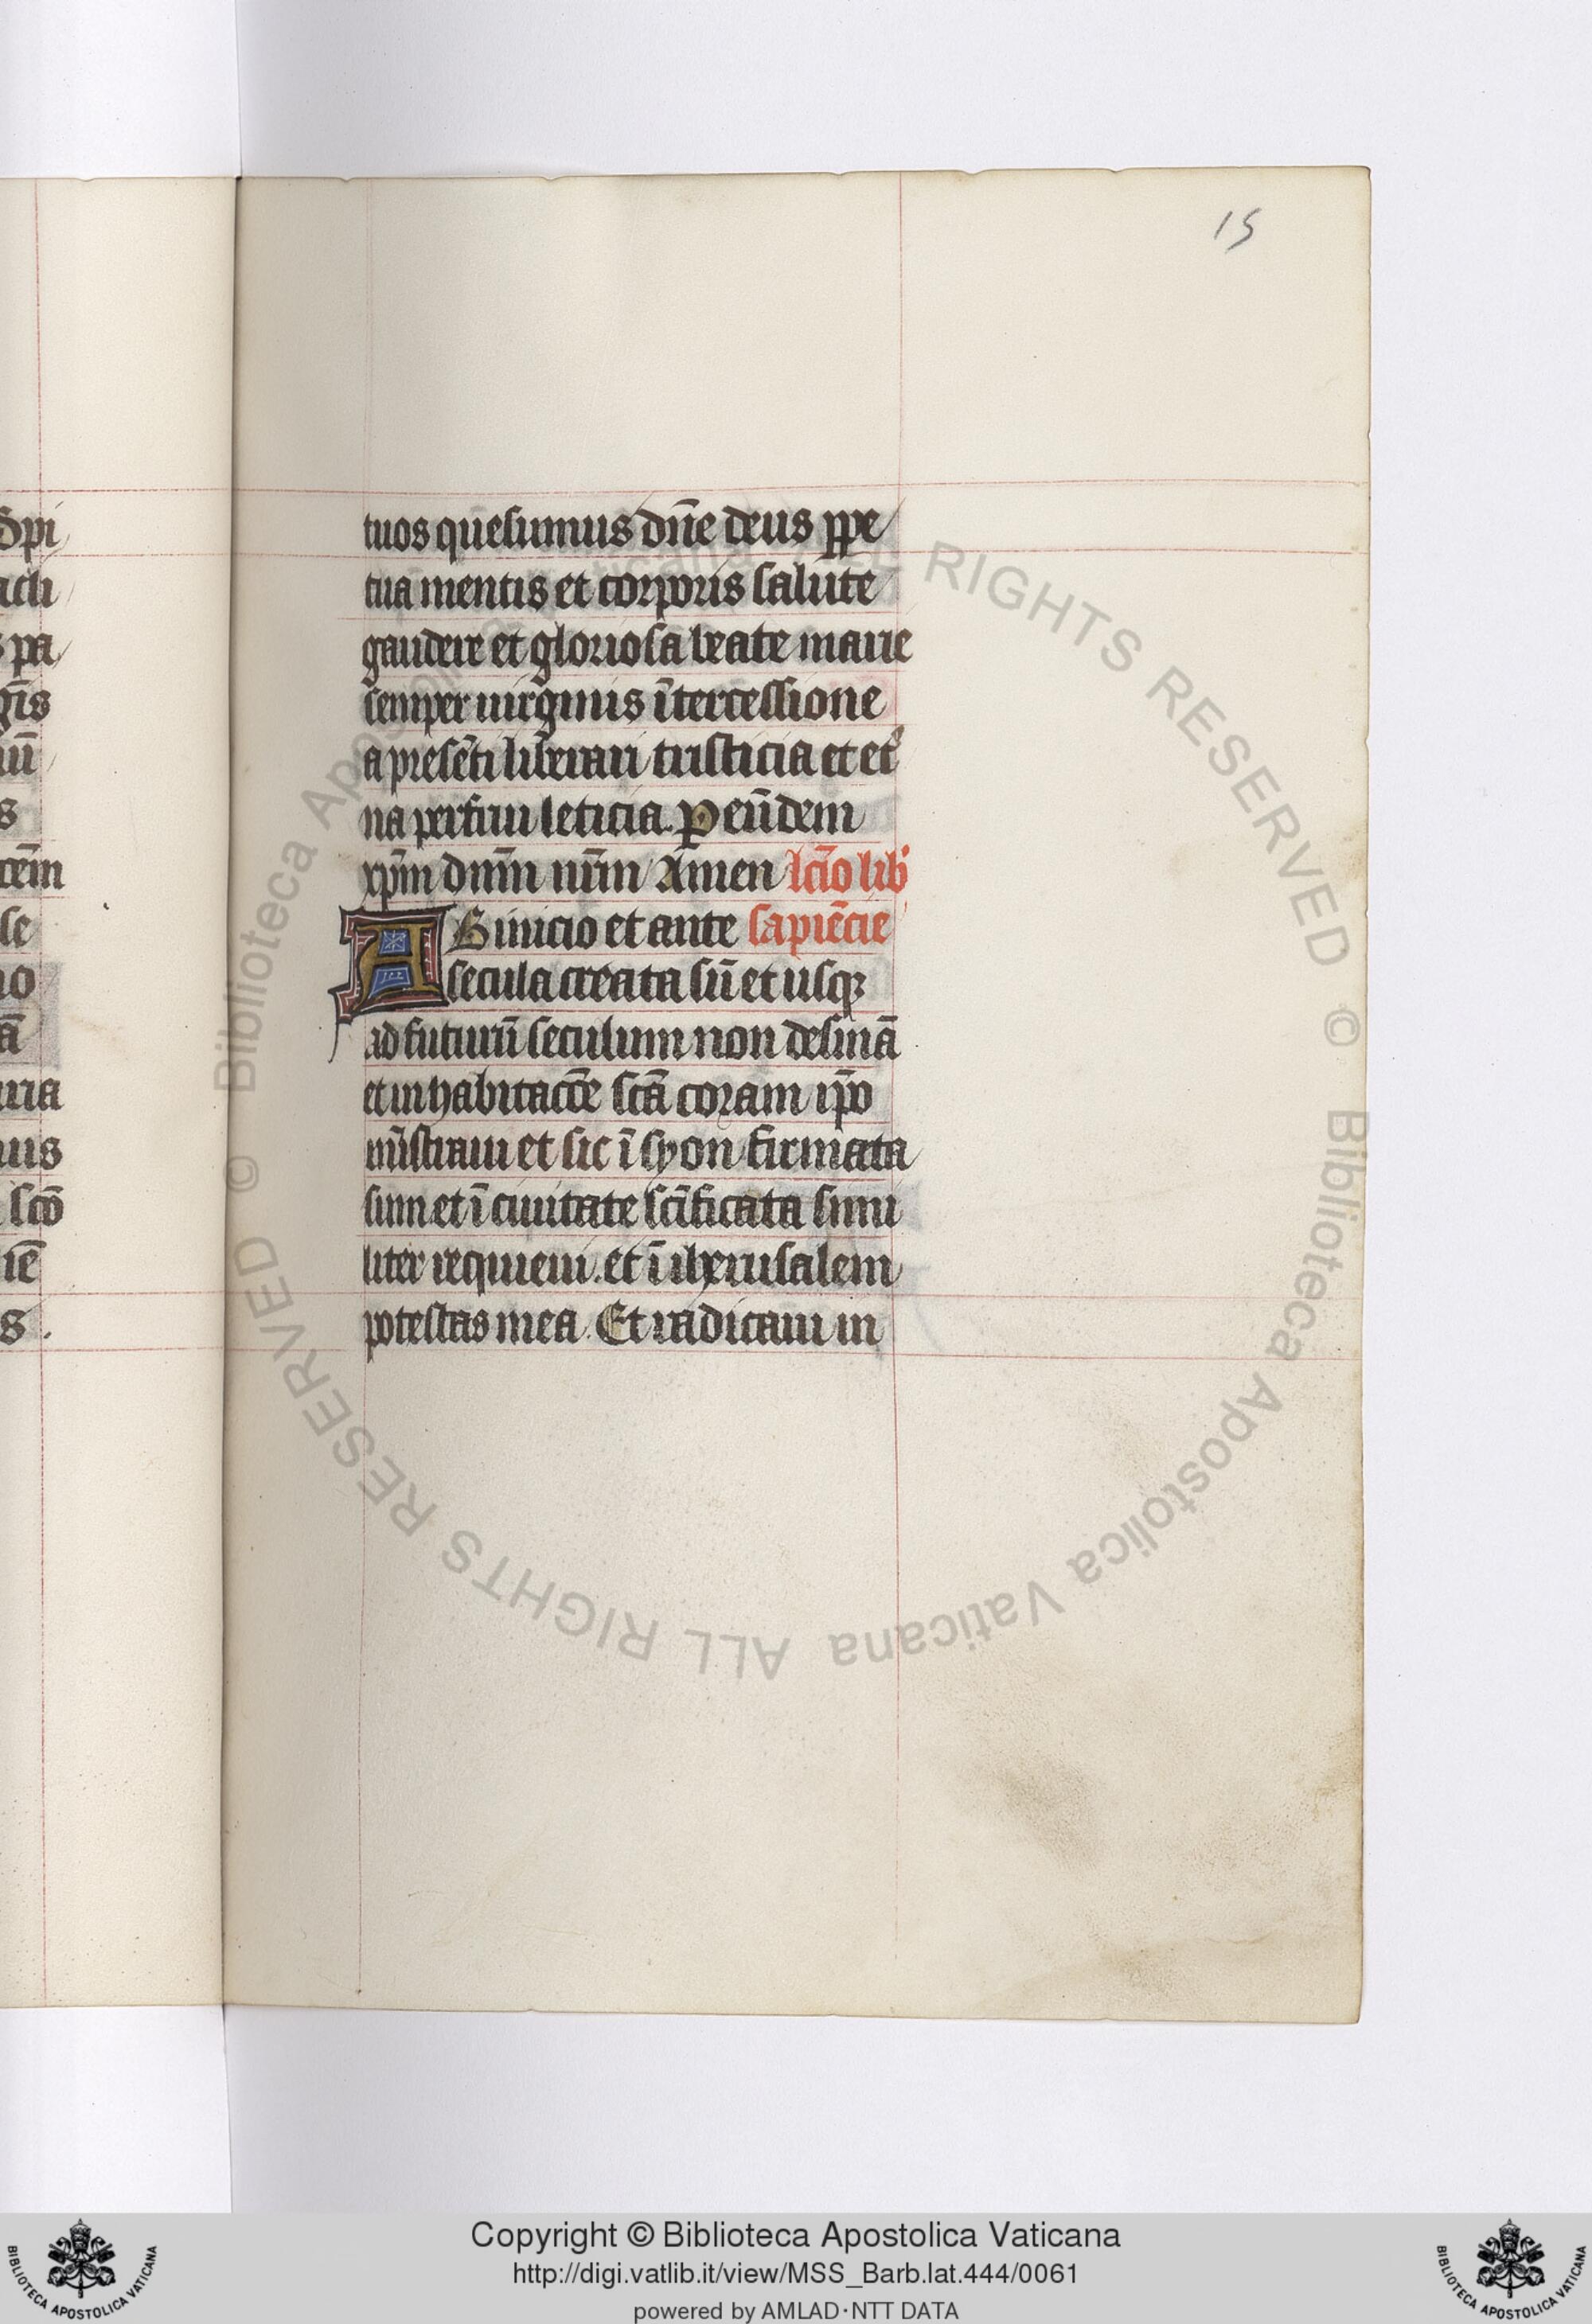 15
tuos quesumus dn̄e deus ꝑpe
tua mentis et corporis salute
gaudere et gloriosa beate marie
semper uirginis ītercessione
a presēti liberari tristicia et et᷑
na perfrui leticia. P eūdem
xp̄m dnm̄ nrm̄ Amen lcīo lib᷑
AB inicio et ante sapiēcie
secula creata sū et usqꝫ
ad futurū seculum non desinā
et in habitacōe scā coram ip̄o
mīstraui et sic ī syon firmata
sum et ī ciuitate scīficata simi
liter requieui. et ī iherusalem
potestas mea. Et radicaui in
ꝺpi
adi
pa
gīs
uū
s
cēm
le
no
ā
uia
uus
scō
iē
s.
© Biblioteca Apostolica Vaticana ALL RIGHTS RESERVED
© Biblioteca Apostolica Vaticana ALL RIGHTS RESERVED
Copyright © Biblioteca Apostolica Vaticana
http://digi.vatlib.it/view/MSS_Barb.lat.444/0061
powered by AMLAD·NTT DATA
BIBLIOTECA APOSTOLICA VATICANA
BIBLIOTECA APOSTOLICA VATICANA